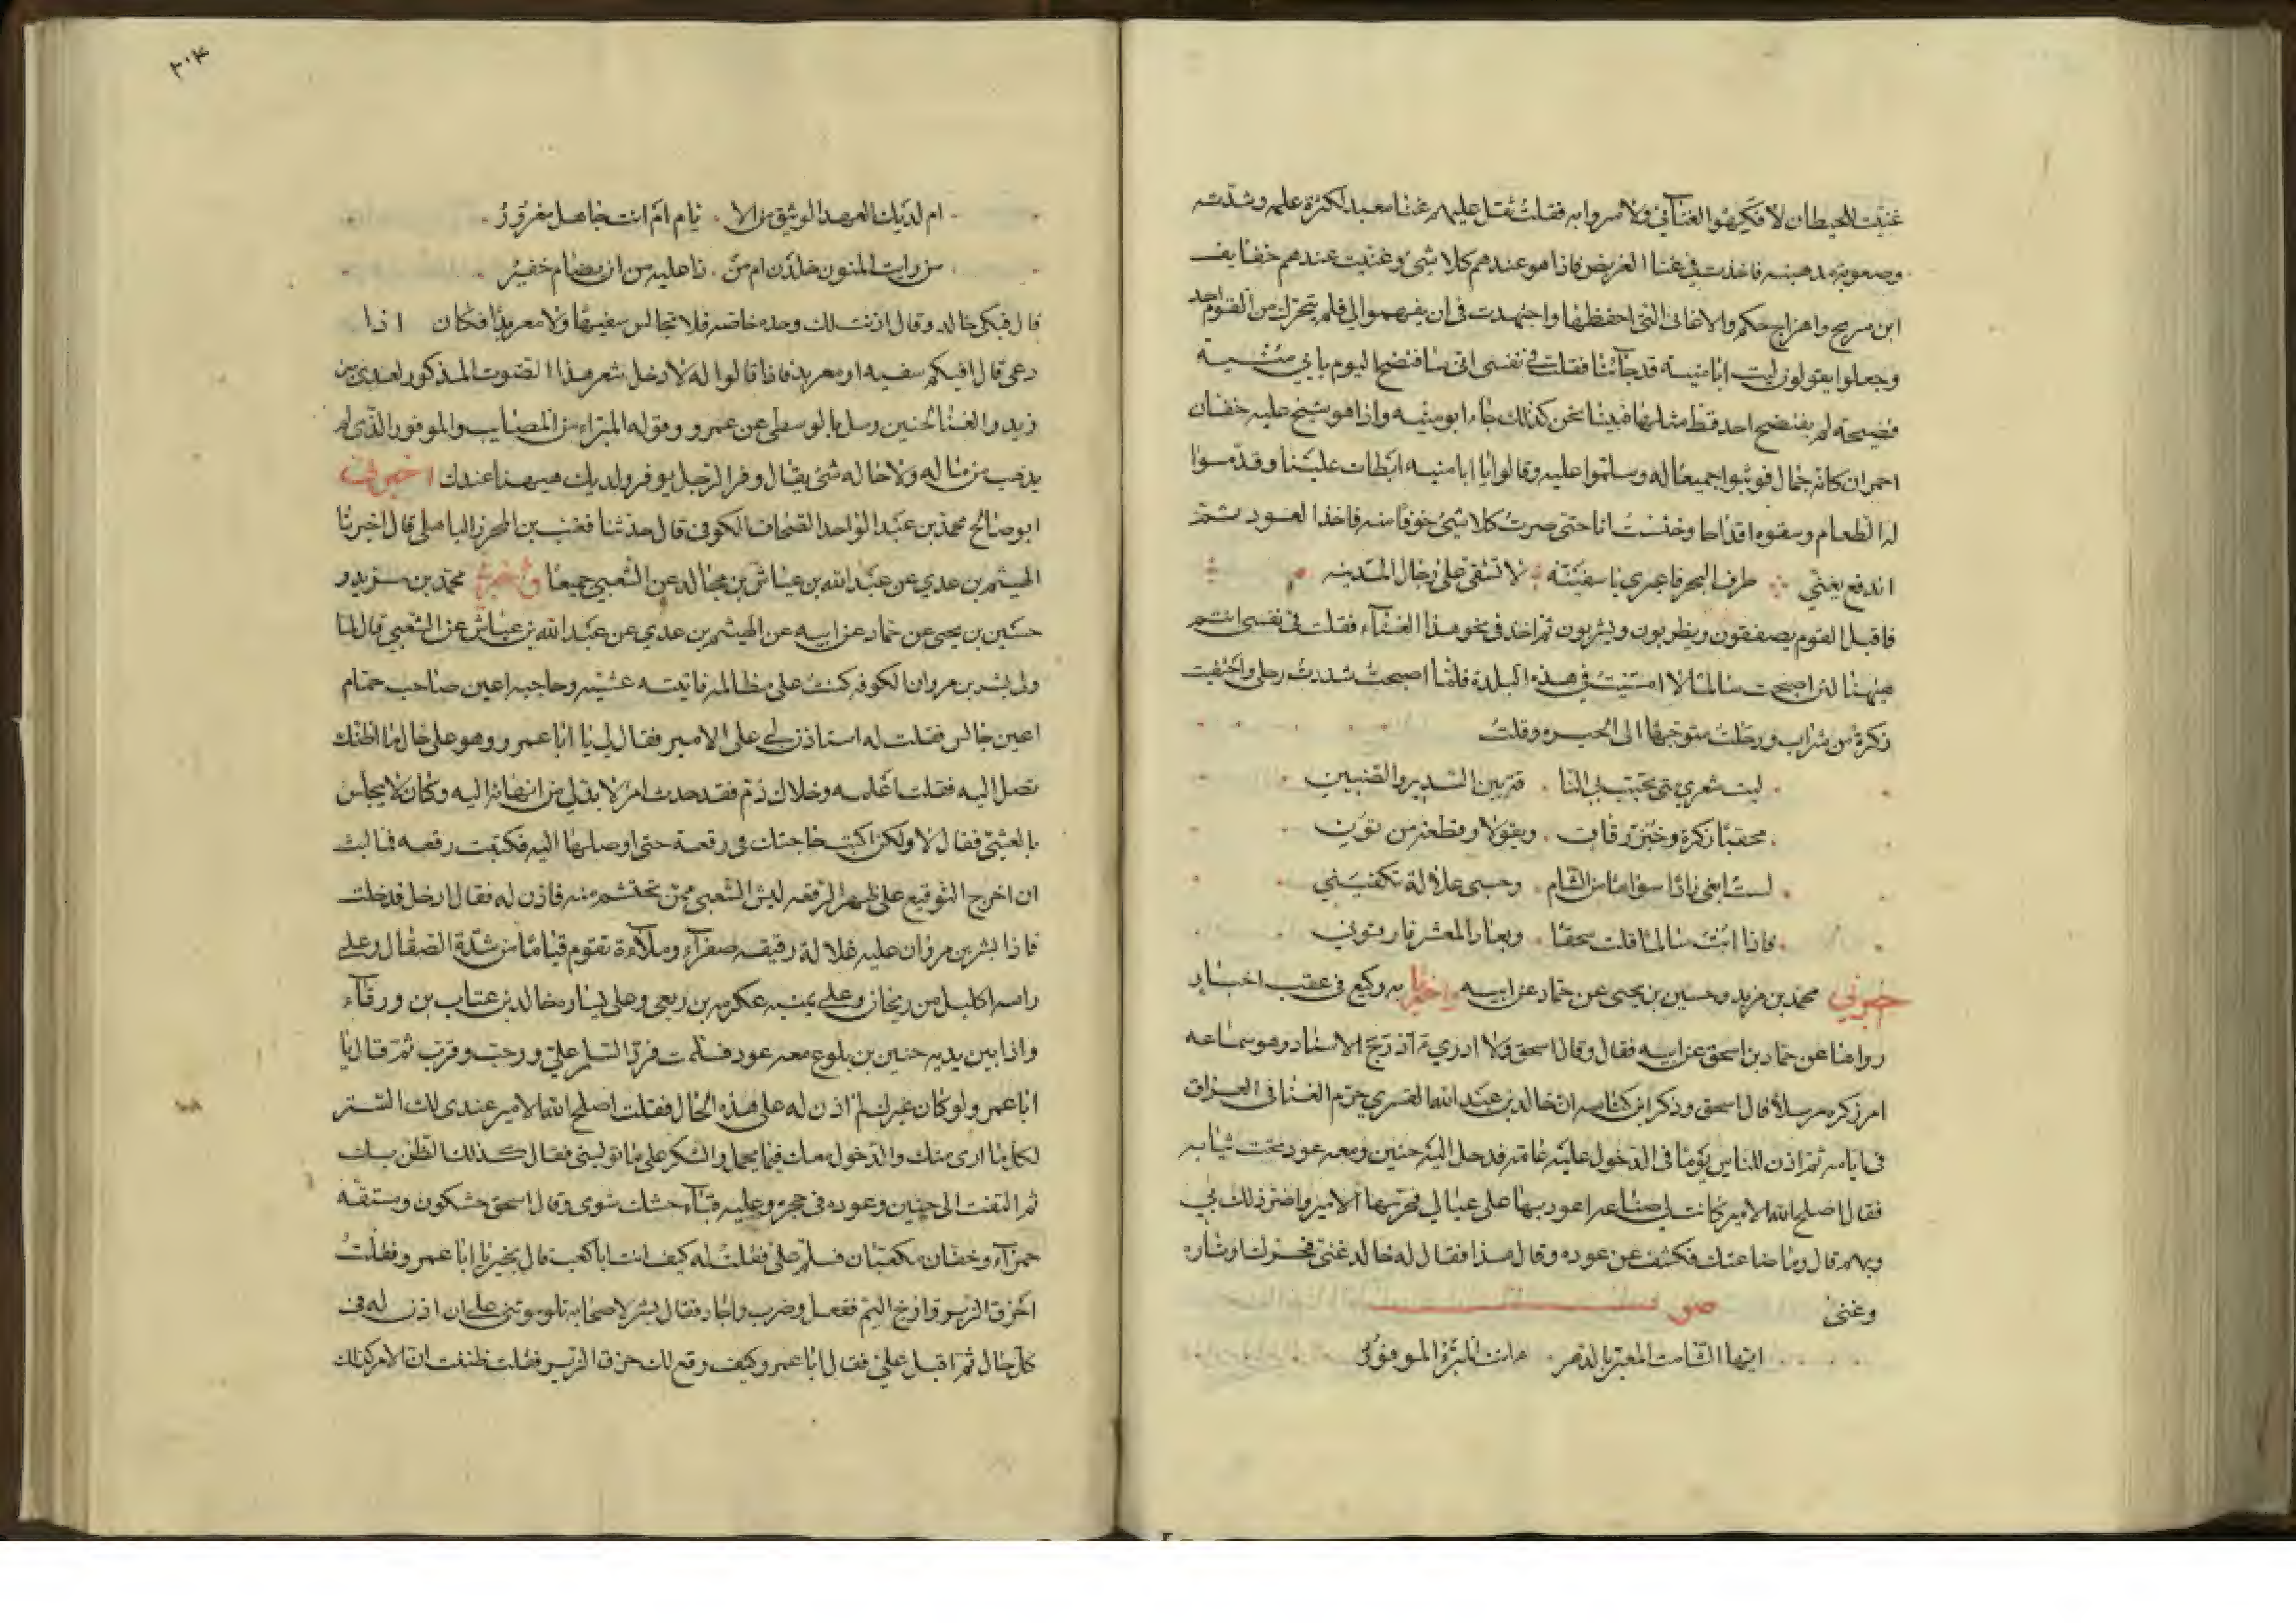 غنيت للحيطان لا فكيهوا لغنآئي ولا سروا به فقلت ثقل عليهم غنا معبد لكثرة علمه وشدته
وصعوبة مذهبه فاخذت في غنا الغريض فاذا هو عندهم كلا شئ وغنيت عندهم خفايف
ابن سريج واهزاج حكم والاغاني التي احفظها واجتهدت في ان يفهموا لي فلم يتحرك من القوم احد
وجعلوا يقولون ليت ابا منية قد جآئنا فقلت في نفسي اني سافتضح اليوم بابي منية
فضيحة لم يفتضح احد قط مثلها فبينا نحن كذلك جاء ابو منيه واذا هو شيخ عليه خفان
احمران كانه جمال فوثبوا جميعا له وسلموا عليه وقالوا يا ابا منيه ابطات علينا وقدموا
له الطعام وسقوه اقداحا وخنست انا حتى صرت كلا شئ خوفا منه فاخذ العود ثم
اندفع يغني طرف البحر فاعبري يا سفينه لا تشقي على رجال المدينه
فاقبل القوم يصفقون ويطربون ويشربون ثم اخذ في نحو هذا الغنآء فقلت في نفسي انتم
هيهنا لئن اصبحت سالما لا امسيت في هذه البلدة فلما اصبحت شددت رحلي واحتقبت
ذكرة من شراب ورحلت متوجها الى الحيره وقلت
ليت شعري متى تخب بي النا قة بين السدير والصنين
محقبا زكرة وخبز رقاق وبقولا وقطعة من نون
لست ابغي زادا سواها من الشام وحسبي علالة تكفيني
فاذا ابت سالما قلت سحقا وبعادا لمعشر فارقوني
خبرني محمد بن مزيد وحسين بن يحيى عن حماد عن ابيه واخبرنا به وكيع في عقب اخبار
رواها عن حماد بن اسحق عن ابيه فقال وقال اسحق ولا ادري آدرج الاسناد وهو سماعه
ام ذكره مرسلا قال اسحق وذكر ابن كناسه ان خالد بن عبد الله القسري حرم الغنا في العراق
في ايامه ثم اذن للناس يوما في الدخول عليه عامة فدخل اليه حنين ومعه عود تحت ثيابه
فقال اصلح الله الامير كانت لي صناعه اعود بها على عيالي فحرمها الامير واضر ذلك بي
وبهم قال وما صناعتك فكشف عن عوده وقال هذا فقال له خالد غنى فحرك اوتاره
وغنى صو
ايها الشامت المعير بالدهر ءانت المبرؤ الموفور

٢٠٤
ام لديك العهد الوثيق من الا يام ام انت جاهل مغرور
من رايت المنون خلدن ام من ذا عليه من ان يضام خفير
قال فبكى خالد وقال اذنت لك وحده خاصه فلا تجالس سفيها ولا معربدا فكان اذا
دعي قال افيكم سفيه او معربد فاذا قالوا له لا دخل شعر هذا الصوت المذكور لعدي بن
زيد والغنا لحنين رمل بالوسطى عن عمرو وقوله المبراء من المصايب والموفور الذي لم
يذهب من ماله ولا حاله شئ يقال وفر الرجل يوفر ولديك هيهنا عندك اخبرني
ابو صالح محمد بن عبد الواحد الصحاف الكوفي قال حدثنا قعنب بن المحرز الباهلي قال اخبرنا
الهيثم بن عدي عن عبد الله بن عياش بن مجالد عن الشعبي جميعا واخبرني محمد بن مزيد و
حسين بن يحيى عن حماد عن ابيه عن الهيثم بن عدي عن عبد الله بن عياش عن الشعبي قال لما
ولى بشر بن مروان الكوفه كنت على مظالمه فاتيته عشية وحاجبه اعين صاحب حمام
اعين جالس فقلت له استاذن لي على الامير فقال لي يا ابا عمرو وهو على حال ما اظنك
تصل اليه فقلت اعلمه وخلاك ذم فقد حدث امر لا بد لي من انهائه اليه وكان لا يجلس
بالعشي فقال لا ولكن اكتب حاجتك في رقعة حتى اوصلها اليه فكتبت رقعه فما لبث
ان اخرج التوقيع على ظهر الرقعه ليس الشعبي ممن تحتشم منه فاذن له فقال ادخل فدخلت
فاذا بشر بن مروان عليه غلالة رقيقه صفرآء وملآءة تقوم قياما من شدة الصقال وعلى
راسه اكليل من ريحان وعلى يمنيه عكرمه بن ربعي وعلى يساره خالد بن عتاب بن ورقآء
واذا بين يديه حنين بن بلوع معه عود فسلمت فرد السلم علي ورحب وقرب ثم قال يا
ابا عمرو لو كان غيرك لم اذن له على هذه الحال فقلت اصلح الله الامير عندي لك الستر
لكل ما ارى منك والدخول معك فيما يجمل والشكر على ما توليني فقال كذلك الظن بك
ثم التفت الى حنين وعوده في حجره وعليه قبآء خشك شوى وقال اسحق خشكون ومستقة
حمرآء وخفان مكعبان فسلم علي فقلت له كيف انت ابا كعب قال بخير يا ابا عمرو فقلت
احزق الزير وارخ اليم ففعل وضرب واجاد فقال بشر لاصحابه تلوموتني على ان اذن له في
كل حال ثم اقبل علي فقال ابا عمرو وكيف وقع لك حزق الزير فقلت ظننت ان الامر كذلك